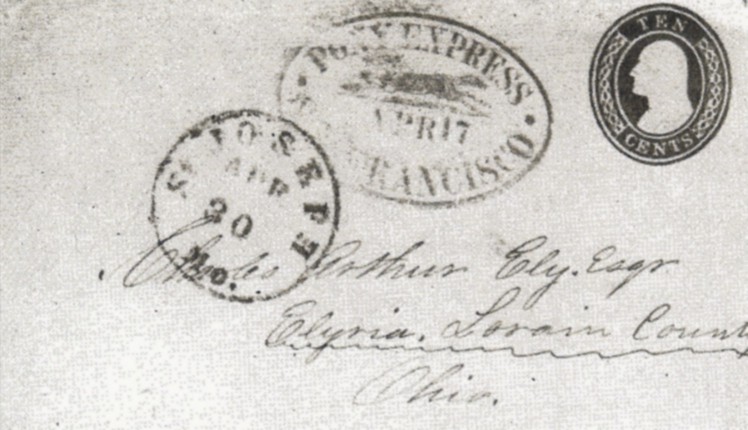 TEN
CENTS
PONY EXPRESS
APR 17
SAN FRANCISCO
ST JOSEPH
APR
30
Mo.
Charles Arthur Ely. Esqr
Elyria. Lorain Count
Ohio.